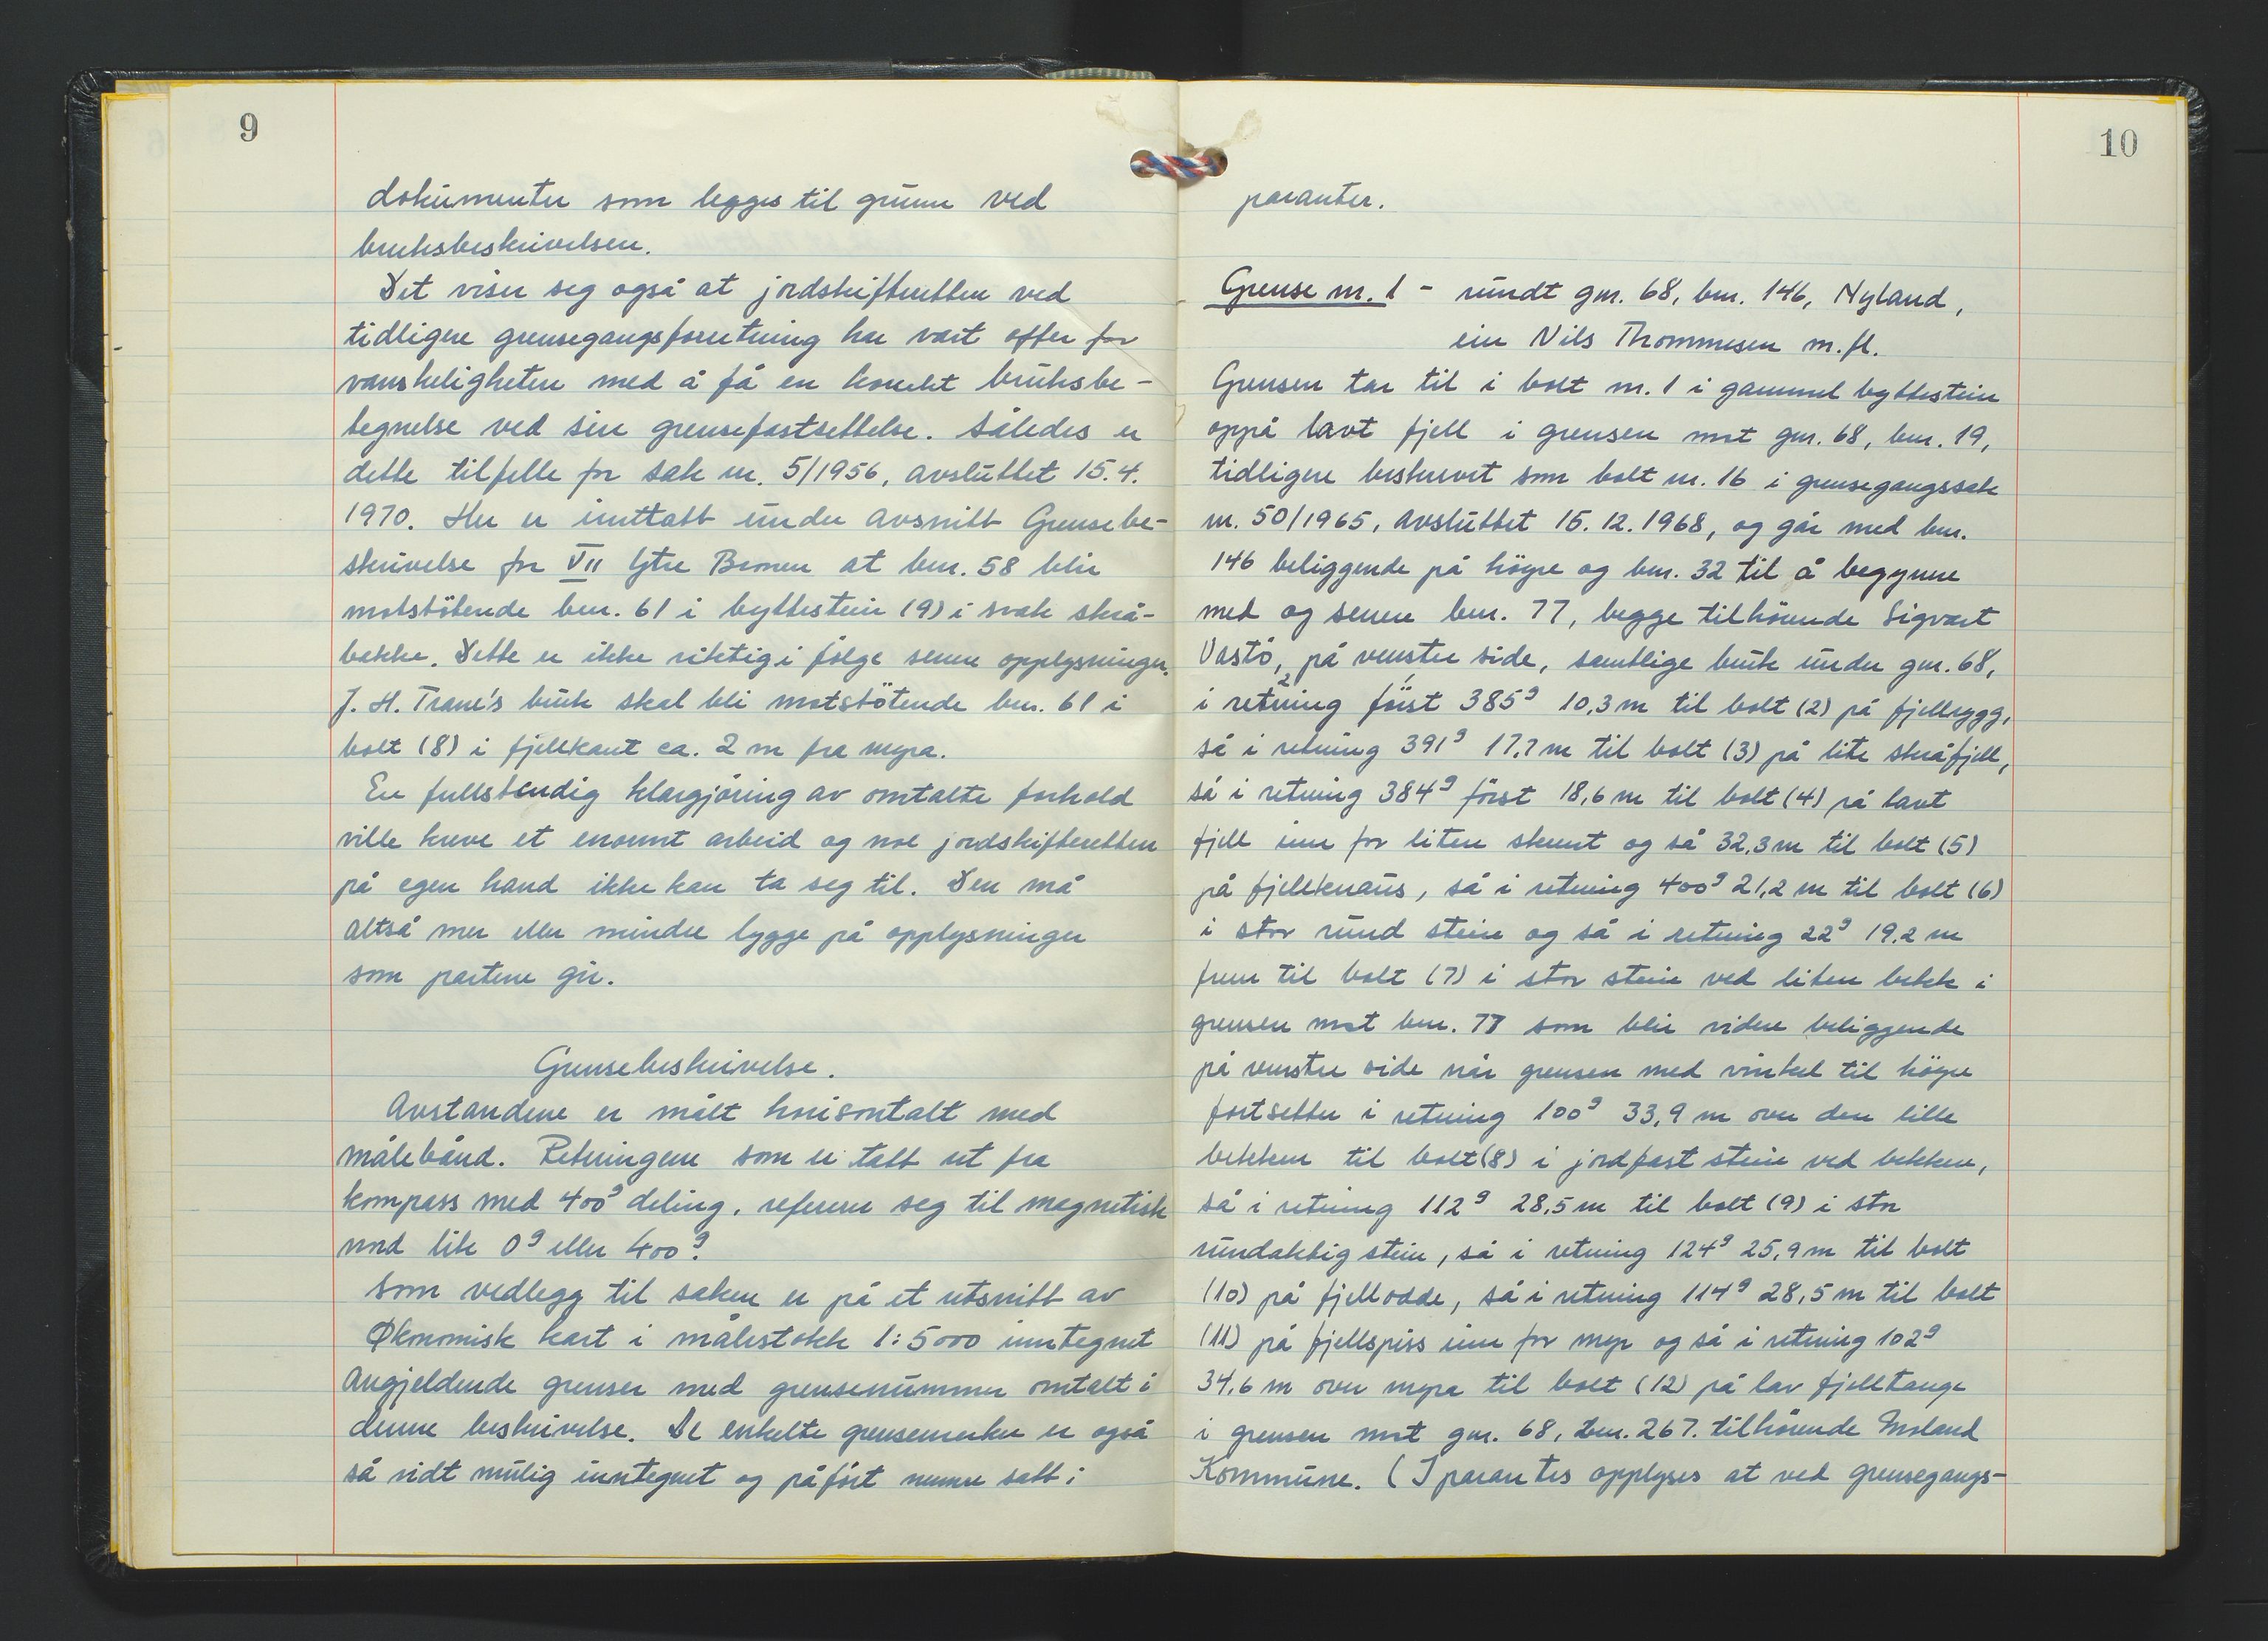 9
dokumenter som legges til grunn ved
bruksbeskrivelsen.
Det viser seg også at jordskifteretten ved
tidligere grensegangsforretning har vært offer for
vanskeligheter med å få en korrekt bruksbe-
tegnelse ved sin grensefastsettelse. Således er
dette tilfelle for sak nr. 5/1956, avsluttet 15.4.
1970. Her er inntatt under avsnitt Grensebe-
skrivelse for VII Ytre Bronen at bnr. 58 blir
motstötende bnr. 61 i byttestein (9) i svak skrå-
bakke. Dette er ikke riktig i følge senere opplysninger.
J. H. Trane's bruk skal bli motstötende bnr. 61 i
bolt (8) i fjellkant ca. 2 m fra myra.
En fullstendig klargjöring av omtalte forhold
ville kreve et enormt arbeid og noe jordskifteretten
på egen hand ikke kan ta seg til. Den må
altså mer eller mindre bygge på opplysninger
som partene gir.
Grensebeskrivelse.
Avstandene er målt horisontalt med
målebånd. Retningene som er tatt ut fra
kompass med 400g deling, referere seg til magnetisk
nord lik 0g eller 400g.
Som vedlegg til saken er på et utsnitt av
Økonomisk kart i målestokk 1:5000 inntegnet
angjeldende grenser med grensenummer omtalt i
denne beskrivelse. De enkelte grensemerker er også
så vidt mulig inntegnet og påført numre satt i
10
paranter.
Grense nr. 1 - rundt gnr. 68, bnr. 146, Nyland,
eier Nils Thommesen m.fl.
Grensen tar til i bolt nr. 1 i gammel byttestein
oppå lavt fjell i grensen mot gnr. 68, bnr. 19,
tidligere beskrevet som bolt nr. 16 i grensegangssak
nr. 50/1965, avsluttet 15.12.1968, og går med bnr.
146 beliggende på höyre og bnr. 32 til å begynne
med og senere bnr. 77, begge tilhörende Sigvart
Vastö, på venstre side, samtlige bruk under gnr. 68,
i retning först 385g 10,3 m til bolt (2) på fjellrygg,
så i retning 391g 17,7 m til bolt (3) på lite skråfjell,
så i retning 384g först 18,6 m til bolt (4) på lavt
fjell inn for liten skrent og så 32,3 m til bolt (5)
på fjellknaus, så i retning 400g 21,2 m til bolt (6)
i stor rund stein og så i retning 22g 19,2 m
frem til bolt (7) i stor stein ved liten bekk i
grensen mot bnr. 77 som blir videre beliggende
på venstre side når grensen med vinkel til höyre
fortsetter i retning 100g 33,9 m over den lille
bekken til bolt (8) i jordfast stein ved bekken,
så i retning 112g 28,5 m til bolt (9) i stor
rundaktig stein, så i retning 124g 25,9 m til bolt
(10) på fjellodde, så i retning 114g 28,5 m til bolt
(11) på fjellspiss inn for myr og så i retning 102g
34,6 m over myra til bolt (12) på lav fjelltange
i grensen mot gnr. 68, bnr. 267. tilhörende Moland
Kommune. (I parantes opplyses at ved grensegangs-